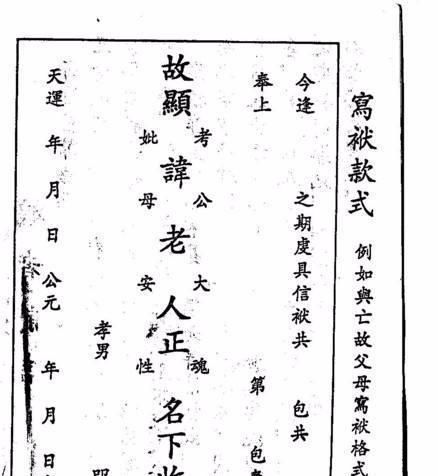 寫袱款式 例如與亡故父母寫袱格式
今逢 之期虔具信袱共 包共
奉上 第 包
考公大魂
故顯 諱 老人正 名下收
妣母安性
孝男
天運 年 月 日 公元 年 月 日